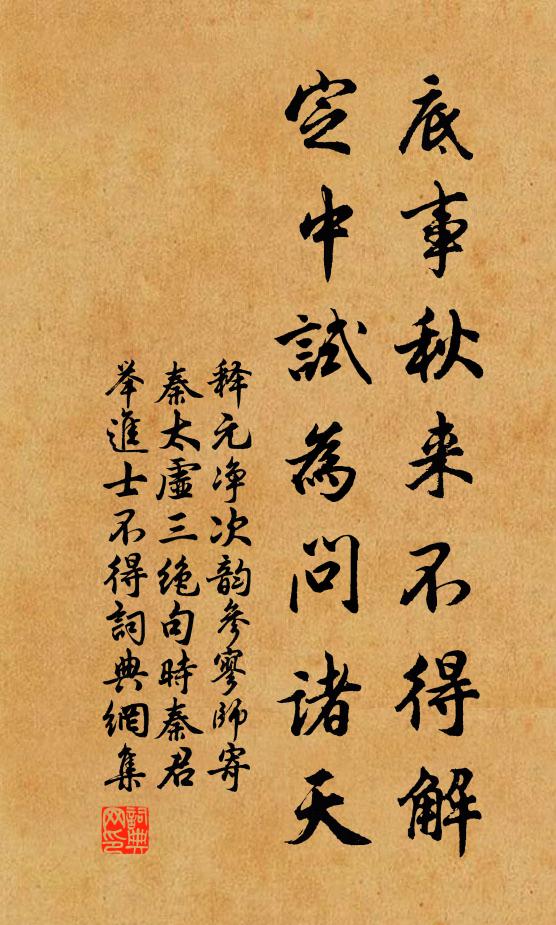 底事秋来不得解
定中試為問諸天
释元净次韵參寥師寄
秦太虛三绝句時秦君
举進士不得詞典網集
詞典
网印